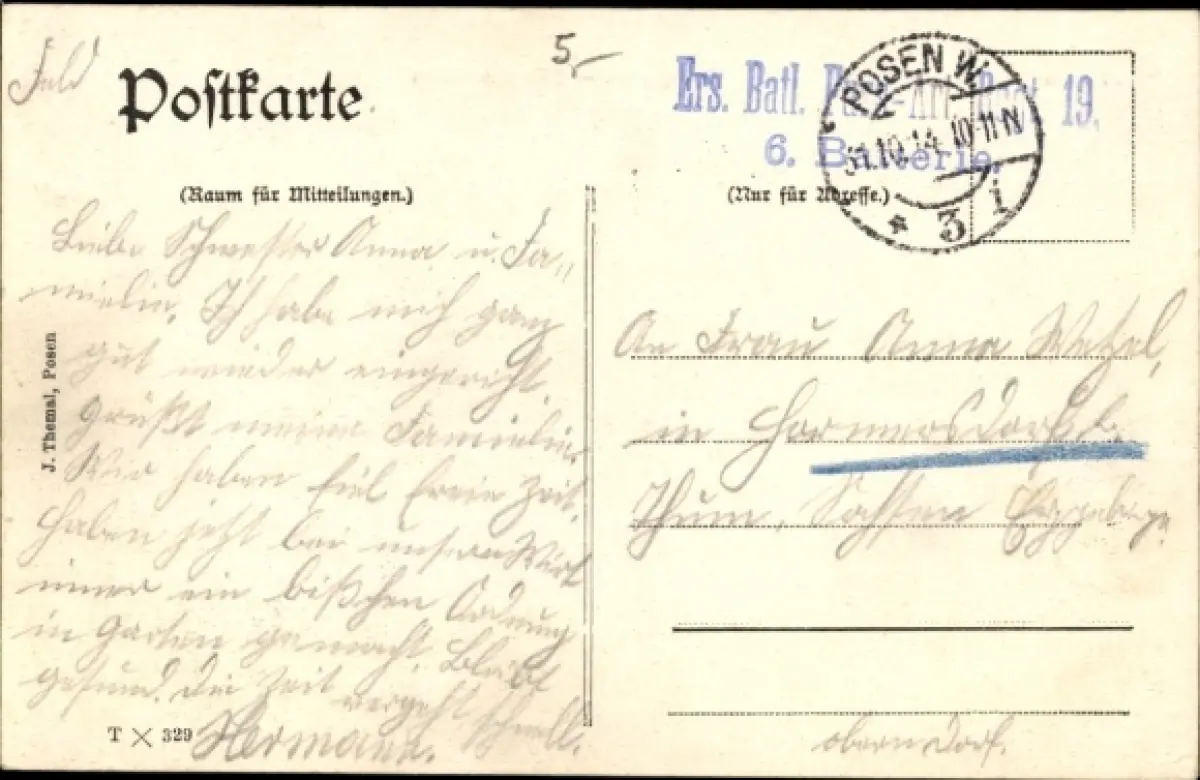 Feld
Postkarte
5,-
Ers. Batl. Fuss-Art. Regt. 19.
6. Batterie.
POSEN W.
31.10.14. 10-11 N
* 3 i
(Raum für Mitteilungen.)
(Nur für Adresse.)
Liebe Schwester Anna u. Fa„
mielie. Ich habe mich ganz
gut wieder eingericht.
grüßt meine Familie.
Wir haben fiel freie Zeit.
haben jetzt bei unsern Wirt
immer ein bißchen Ordnung
in Garten gemacht. Bleibt
gesund. Die Zeit vergeht schnell.
Hermann.
An Frau Anna Wetzel,
in Hormersdorf b.
Thum, Sachsen Erzgebirge.
obern Dorf.
J. Themal, Posen
T X 329